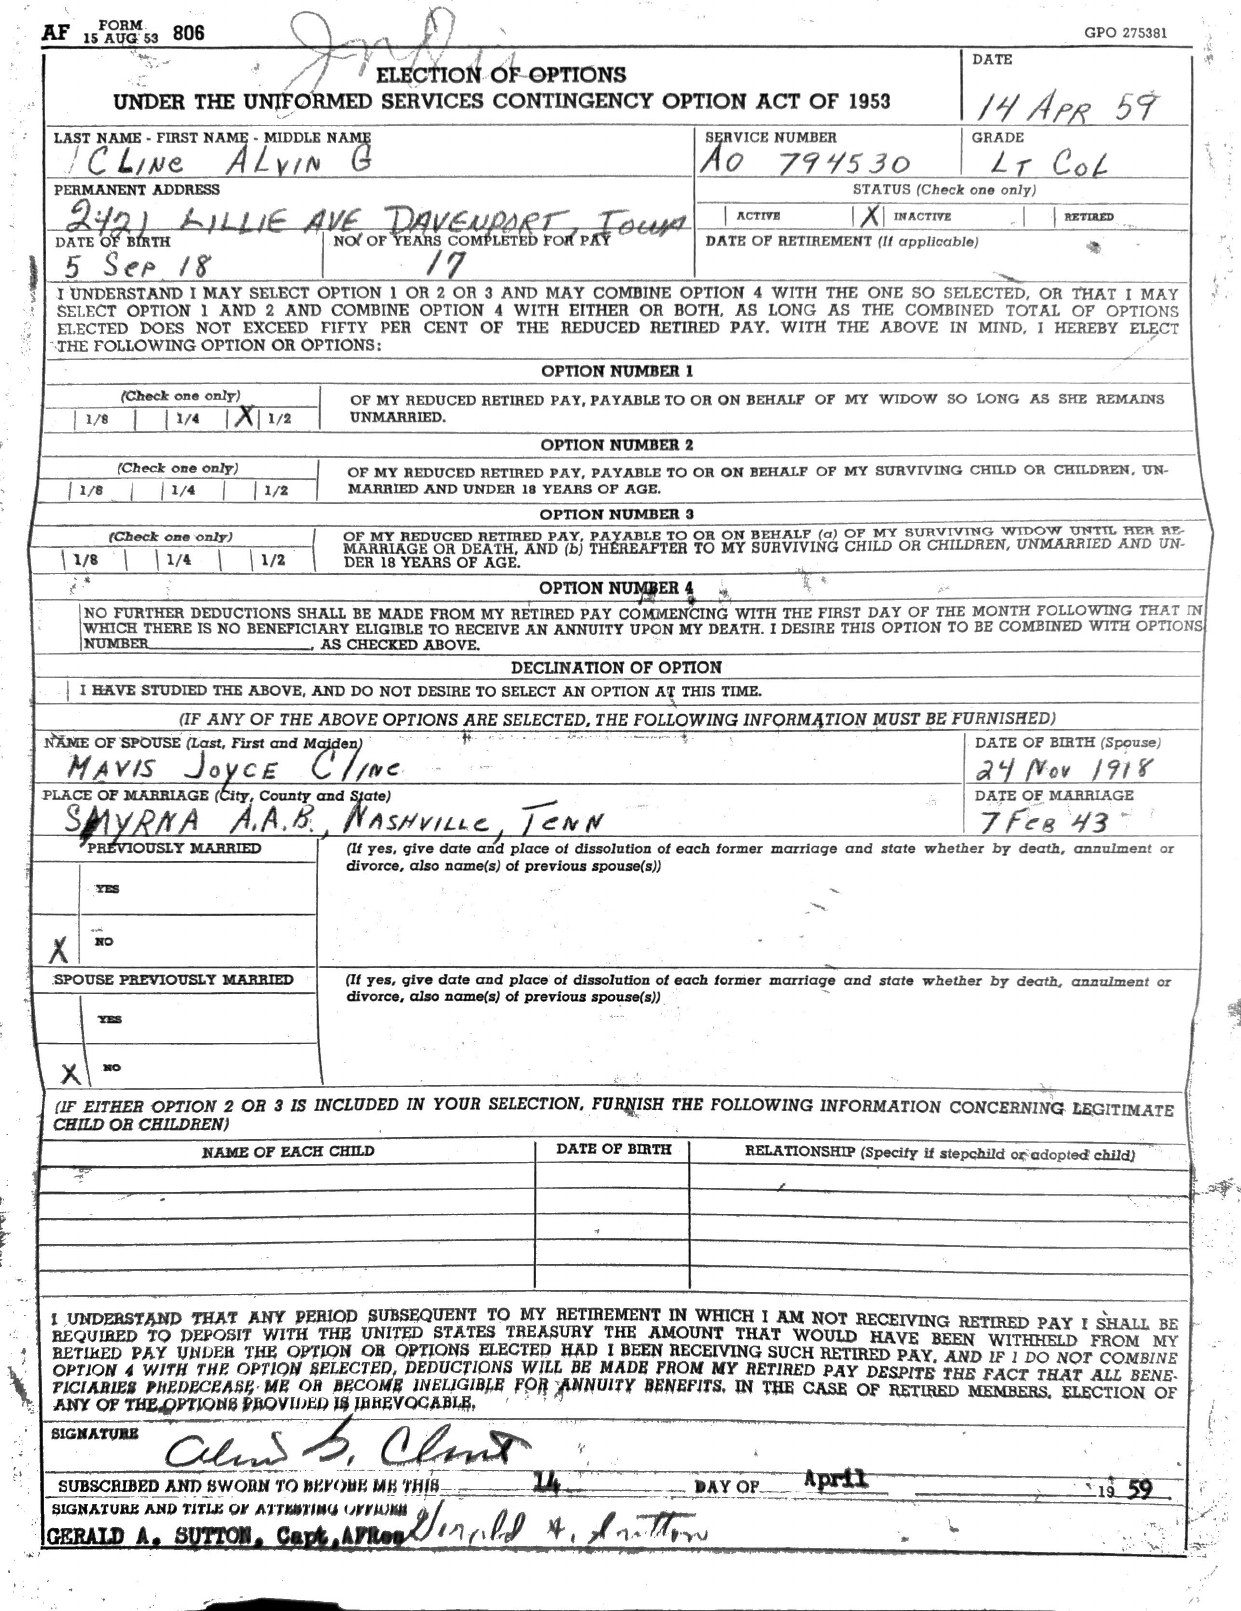 AF FORM 15 AUG 53 806
GPO 275381
ELECTION OF OPTIONS
UNDER THE UNIFORMED SERVICES CONTINGENCY OPTION ACT OF 1953
DATE
14 APR 59
LAST NAME - FIRST NAME - MIDDLE NAME
CLINE ALVIN G
SERVICE NUMBER
AO 794530
GRADE
LT COL
PERMANENT ADDRESS
2421 LILLIE AVE DAVENPORT, IOWA
STATUS (Check one only)
ACTIVE X INACTIVE RETIRED
DATE OF BIRTH
5 SEP 18
NO. OF YEARS COMPLETED FOR PAY
17
DATE OF RETIREMENT (If applicable)
I UNDERSTAND I MAY SELECT OPTION 1 OR 2 OR 3 AND MAY COMBINE OPTION 4 WITH THE ONE SO SELECTED, OR THAT I MAY
SELECT OPTION 1 AND 2 AND COMBINE OPTION 4 WITH EITHER OR BOTH, AS LONG AS THE COMBINED TOTAL OF OPTIONS
ELECTED DOES NOT EXCEED FIFTY PER CENT OF THE REDUCED RETIRED PAY. WITH THE ABOVE IN MIND, I HEREBY ELECT
THE FOLLOWING OPTION OR OPTIONS:
OPTION NUMBER 1
(Check one only)
1/8 1/4 X 1/2
OF MY REDUCED RETIRED PAY, PAYABLE TO OR ON BEHALF OF MY WIDOW SO LONG AS SHE REMAINS
UNMARRIED.
OPTION NUMBER 2
(Check one only)
1/8 1/4 1/2
OF MY REDUCED RETIRED PAY, PAYABLE TO OR ON BEHALF OF MY SURVIVING CHILD OR CHILDREN, UN-
MARRIED AND UNDER 18 YEARS OF AGE.
OPTION NUMBER 3
(Check one only)
1/8 1/4 1/2
OF MY REDUCED RETIRED PAY, PAYABLE TO OR ON BEHALF (a) OF MY SURVIVING WIDOW UNTIL HER RE-
MARRIAGE OR DEATH, AND (b) THEREAFTER TO MY SURVIVING CHILD OR CHILDREN, UNMARRIED AND UN-
DER 18 YEARS OF AGE.
OPTION NUMBER 4
NO FURTHER DEDUCTIONS SHALL BE MADE FROM MY RETIRED PAY COMMENCING WITH THE FIRST DAY OF THE MONTH FOLLOWING THAT IN
WHICH THERE IS NO BENEFICIARY ELIGIBLE TO RECEIVE AN ANNUITY UPON MY DEATH. I DESIRE THIS OPTION TO BE COMBINED WITH OPTIONS
NUMBER , AS CHECKED ABOVE.
DECLINATION OF OPTION
I HAVE STUDIED THE ABOVE, AND DO NOT DESIRE TO SELECT AN OPTION AT THIS TIME.
(IF ANY OF THE ABOVE OPTIONS ARE SELECTED, THE FOLLOWING INFORMATION MUST BE FURNISHED)
NAME OF SPOUSE (Last, First and Maiden)
MAVIS JOYCE CLINE
DATE OF BIRTH (Spouse)
24 NOV 1918
PLACE OF MARRIAGE (City, County and State)
SMYRNA A.A.B., NASHVILLE, TENN
DATE OF MARRIAGE
7 FEB 43
PREVIOUSLY MARRIED
(If yes, give date and place of dissolution of each former marriage and state whether by death, annulment or
divorce, also name(s) of previous spouse(s))
YES
X NO
SPOUSE PREVIOUSLY MARRIED
(If yes, give date and place of dissolution of each former marriage and state whether by death, annulment or
divorce, also name(s) of previous spouse(s))
YES
X NO
(IF EITHER OPTION 2 OR 3 IS INCLUDED IN YOUR SELECTION, FURNISH THE FOLLOWING INFORMATION CONCERNING LEGITIMATE
CHILD OR CHILDREN)
NAME OF EACH CHILD
DATE OF BIRTH
RELATIONSHIP (Specify if stepchild or adopted child)
I UNDERSTAND THAT ANY PERIOD SUBSEQUENT TO MY RETIREMENT IN WHICH I AM NOT RECEIVING RETIRED PAY I SHALL BE
REQUIRED TO DEPOSIT WITH THE UNITED STATES TREASURY THE AMOUNT THAT WOULD HAVE BEEN WITHHELD FROM MY
RETIRED PAY UNDER THE OPTION OR OPTIONS ELECTED HAD I BEEN RECEIVING SUCH RETIRED PAY, AND IF I DO NOT COMBINE
OPTION 4 WITH THE OPTION SELECTED, DEDUCTIONS WILL BE MADE FROM MY RETIRED PAY DESPITE THE FACT THAT ALL BENE-
FICIARIES PREDECEASE ME OR BECOME INELIGIBLE FOR ANNUITY BENEFITS. IN THE CASE OF RETIRED MEMBERS, ELECTION OF
ANY OF THE OPTIONS PROVIDED IS IRREVOCABLE.
SIGNATURE
Alvin G. Cline
SUBSCRIBED AND SWORN TO BEFORE ME THIS 14 DAY OF April 19 59
SIGNATURE AND TITLE OF ATTESTING OFFICER
GERALD A. SUTTON, Capt, AFRes Gerald A. Sutton